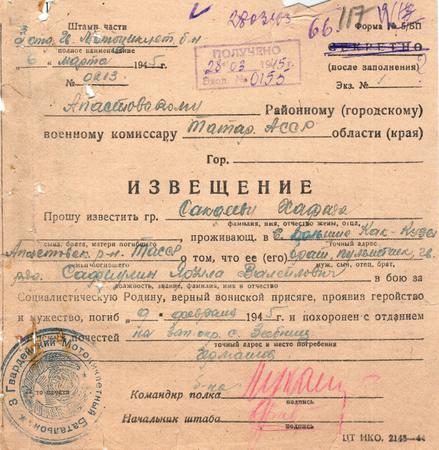 2803403
66/117
Штамп части
Форма № 5/БП
3 отд. Гв. Мотоциклет. б-н
СЕКРЕТНО
полное наименование
(после заполнения)
6 марта 1945 г.
ПОЛУЧЕНО
28 03 1945 г.
Вход. № 0155
№ 0213
Экз. № 1
Апастовскому Районному (городскому)
военному комиссару Татар АССР области (края)
Гор.
ИЗВЕЩЕНИЕ
Прошу известить гр.
фамилия, имя, отчество, фамилии, имена, отчества
проживающ. в с.
сына, брата, матери погибшего
точный адрес
Апастовск. р-н. ТАССР о том, что ее (его) брат, пулеметчик, гв.
муж, сын, отец, брат,
ряд. Сафиулин
должность, звание, фамилия, имя и отчество
в бою за
Социалистическую Родину, верный воинской присяге, проявив геройство
и мужество, погиб 9 февраля 1945 г. и похоронен с отданием
почестей на зап. окр. с.
точный адрес и место погребения
Германия
3 Гвардейский Мотоциклетный Батальон
б-на
Командир полка
подпись
Начальник штаба
подпись
ЦТ НКО. 2145—44